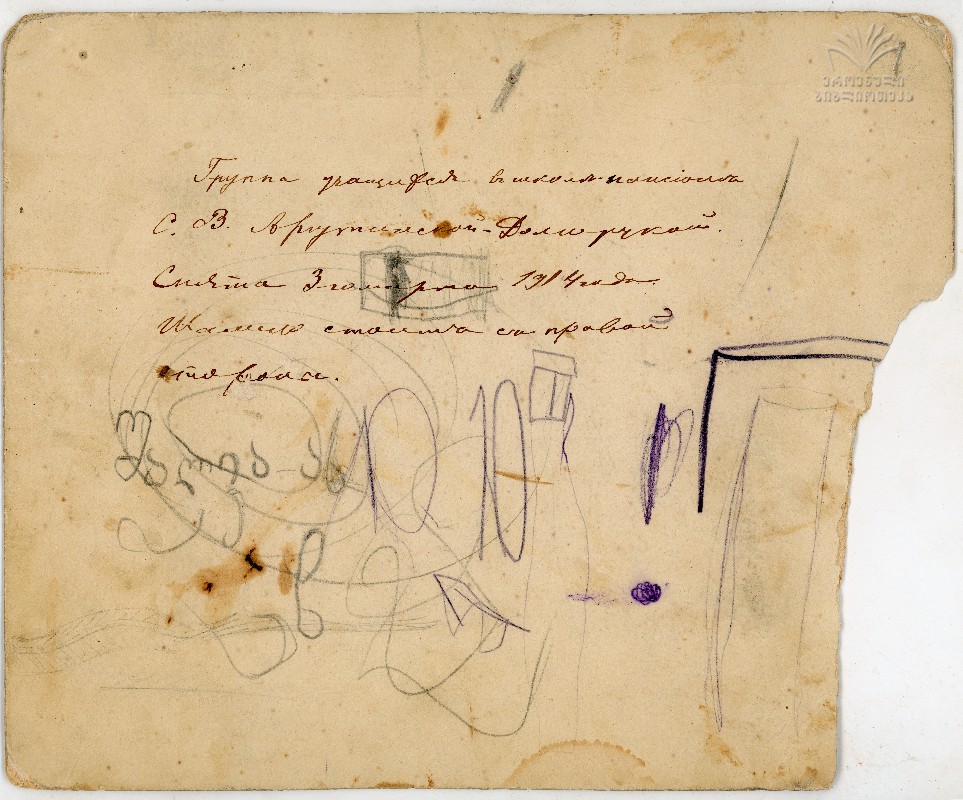 ეროვნული
ბიბლიოთეკა
Группа учащихся в школе-пансионе
С. В. Аргутинской-Долгорукой.
Снята 3-го марта 1914 года.
стоит с правой
стороны.
10 10